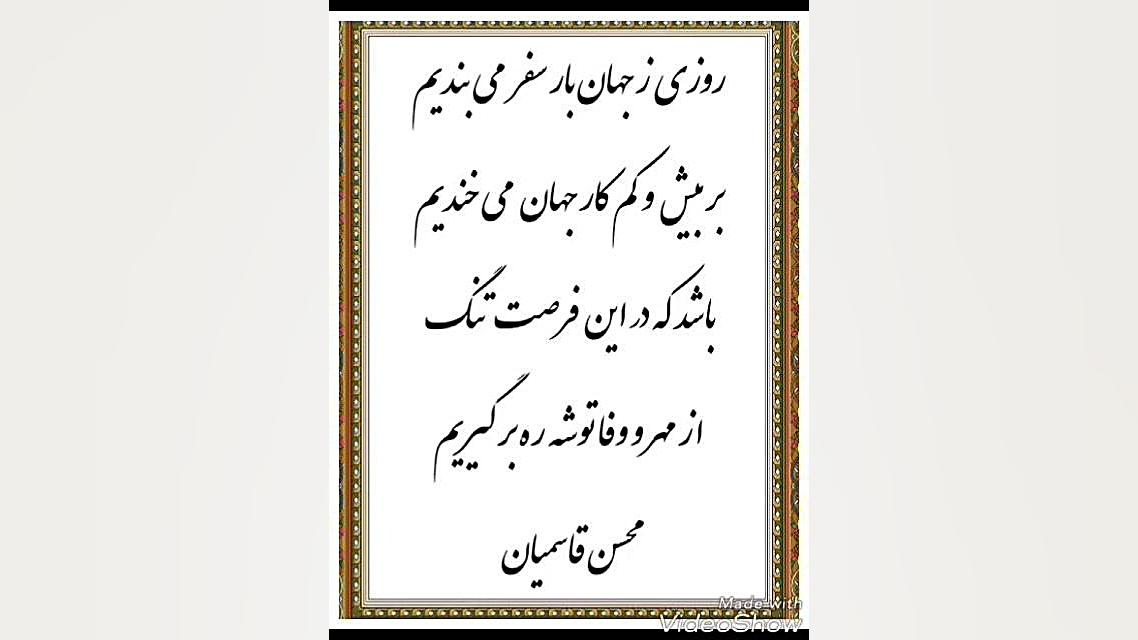 روزی ز جهان بار سفر می بندیم
بر بیش و کم کار جهان می خندیم
باشد که در این فرصت تنگ
از مهر و وفا توشه ره بر گیریم
محسن قاسمیان
Made with
VideoShow